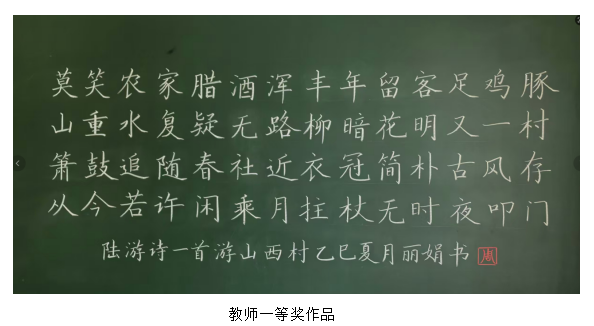 莫笑农家腊酒浑丰年留客足鸡豚
山重水复疑无路柳暗花明又一村
箫鼓追随春社近衣冠简朴古风存
从今若许闲乘月拄杖无时夜叩门
陆游诗一首游山西村乙巳夏月丽娟书
教师一等奖作品